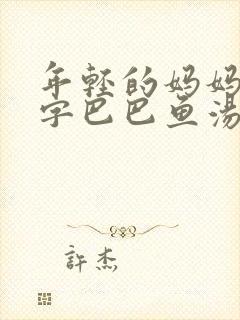 年轻的妈妈
字巴巴鱼汤
許杰